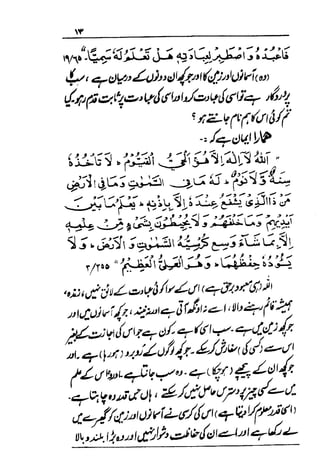 ۱۳
فَاعْبُدْهُ وَاصْطَبِرْ لِعِبَادَتِهِ هَلْ تَعْلَمُ لَهُ سَمِيًّا۔ ۱۹/۶۵
(وہ) آسمانوں اور زمین کا اور جو کچھ ان دونوں کے درمیان ہے، سب کا
پروردگار ہے تو اسی کی عبادت کرو اور اسی کی عبادت پر ثابت قدم رہو۔ کیا
تم کوئی اس کا ہم نام جانتے ہو؟
ہمارا ایمان ہے کہ:-
"اَللّٰهُ لَا اِلٰهَ اِلَّا هُوَ الْحَيُّ الْقَيُّوْمُ ۚ لَا تَاْخُذُهٗ
سِنَةٌ وَّلَا نَوْمٌ ۚ لَهٗ مَا فِي السَّمٰوٰتِ وَمَا فِي الْاَرْضِ
مَنْ ذَا الَّذِيْ يَشْفَعُ عِنْدَهٗ اِلَّا بِاِذْنِهٖ ۚ يَعْلَمُ مَا بَيْنَ
اَيْدِيْهِمْ وَمَا خَلْفَهُمْ وَلَا يُحِيْطُوْنَ بِشَيْءٍ مِّنْ عِلْمِهٖ
اِلَّا بِمَا شَآءَ وَسِعَ كُرْسِيُّهُ السَّمٰوٰتِ وَالْاَرْضَ ۚ وَلَا
يَئُوْدُهٗ حِفْظُهُمَا ۚ وَهُوَ الْعَلِيُّ الْعَظِيْمُ" ۲/۲۵۵
اللہ (ہی معبود برحق ہے) اس کے سوا کوئی عبادت کے لائق نہیں، زندہ،
ہمیشہ قائم رہنے والا، اسے نہ اونگھ آتی ہے اور نہ نیند، جو کچھ آسمانوں میں اور
جو کچھ زمین میں ہے۔ سب اسی کا ہے۔ کون ہے جو اس کی اجازت کے بغیر
اس سے (کسی کی) سفارش کر سکے۔ جو کچھ لوگوں کے روبرو (ہو رہا) ہے۔ اور
جو کچھ ان کے پیچھے (ہو چکا) ہے۔ وہ سب جانتا ہے۔ اور وہ اس کے علم
میں سے کسی چیز پر دسترس حاصل نہیں کر سکتے، ہاں جس قدر وہ چاہتا ہے۔
(اسی قدر معلوم کرا دیتا ہے) اس کی کرسی نے آسمانوں اور زمین کو گھیرے میں
لے رکھا ہے اور اسے ان کی حفاظت دشوار نہیں اور وہ بڑا بلند و بالا